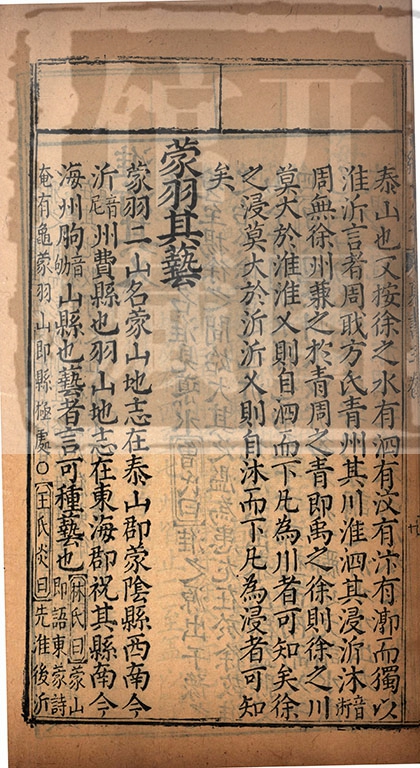 泰山也又按徐之水有泗有汶有汴有漷而獨以
淮沂言者周軄方氏青州其川淮泗其浸沂沭音術
周無徐州蒹之於青周之青即禹之徐則徐之川
莫大於淮淮乂則自泗而下凡為川者可知矣徐
之浸莫大於沂沂乂則自沭而下凡為浸者可知
矣
蒙羽其藝
蒙羽二山名蒙山地志在泰山郡蒙陰縣西南今
沂音尼州費縣也羽山地志在東海郡祝其縣南今
海州朐音劬山縣也藝者言可種藝也林氏曰蒙山即語東蒙詩
奄有龜蒙羽山即縣極處○王氏炎曰先淮後沂